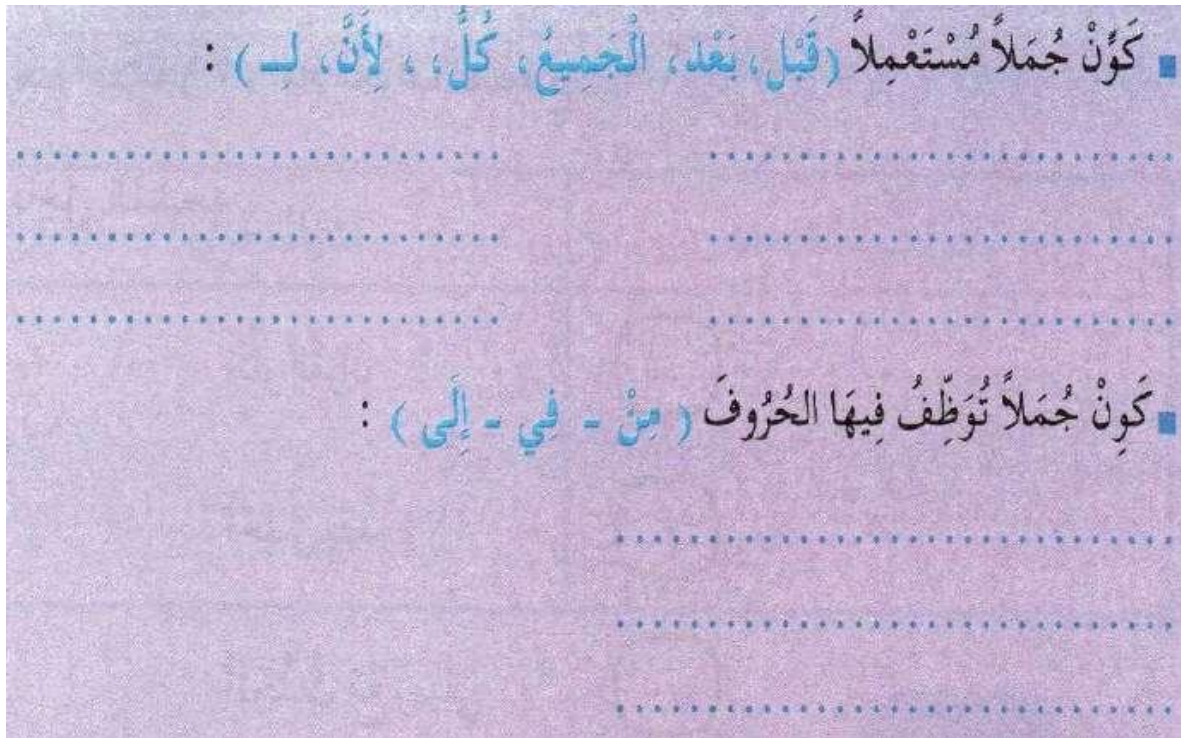 ▪ كَوِّنْ جُمَلاً مُسْتَعْمِلاً (قَبْل، بَعْد، الْجَمِيعُ، كُلُّ، ، لِأَنَّ، لِـ ) :
..............................  ..............................
..............................  ..............................
..............................  ..............................
▪ كَوِنْ جُمَلاً تُوَظِّفُ فِيهَا الحُرُوفَ ( مِنْ - فِي - إِلَى ) :
....................................
....................................
....................................